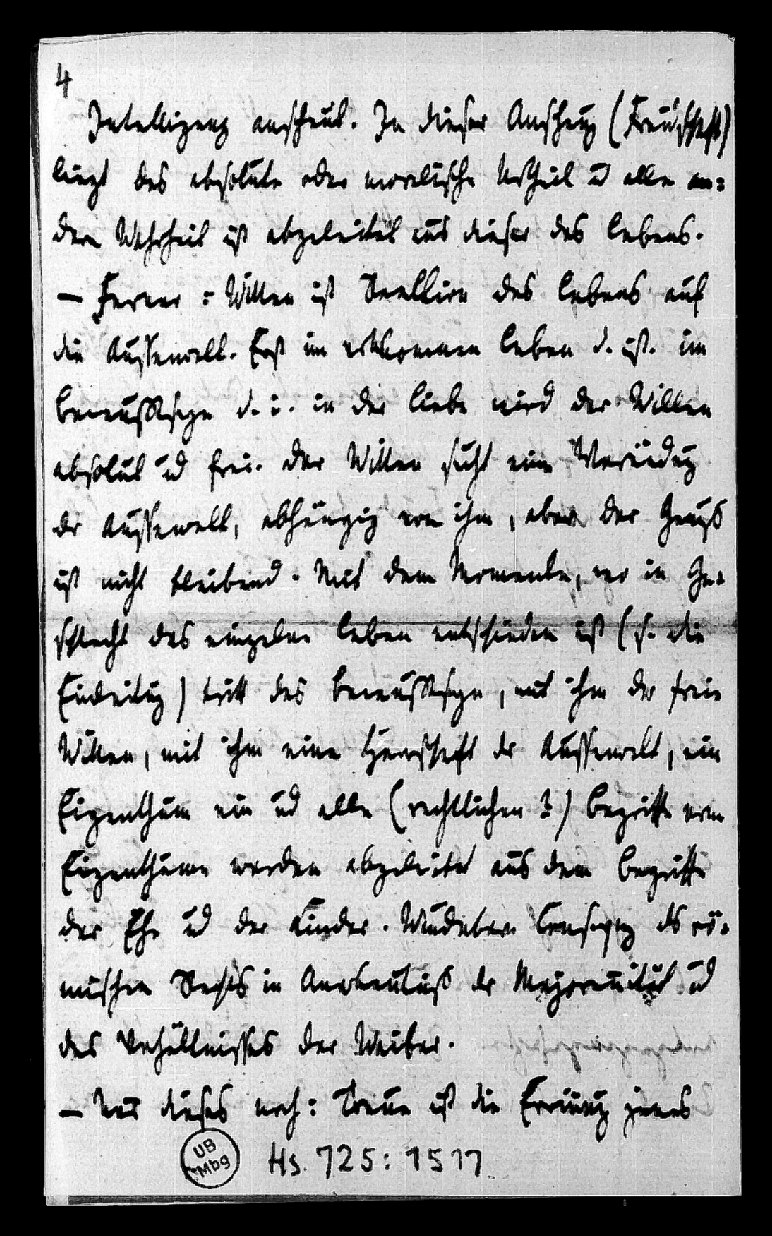 4
Intelligenz anschaut. In dieser Anschaug (Freudschaft)
liegt das absolute oder moralische Urtheil ud alle an-
dere Wahrheit ist abgeleitet aus dieser des Lebens.
— Ferner: Willen ist Reaktion des Lebens auf
die Aussenwelt. Erst im vollkommnen Leben d. ist. im
Bewußtseyn d. i. in der Liebe wird der Willen
absolut ud frei. Der Willen sucht eine Verändg
dr Aussenwelt, abhängig von ihm, aber der Genuß
ist nicht bleibend. Mit dem Momente, wo in Ge-
schlecht das einzelne Leben entschieden ist (s. die
Einleitug) tritt das Bewußtseyn, mit ihm der freie
Willen, mit ihm eine Herrschaft dr Aussenwelt, ein
Eigenthum ein ud alle (rechtlichen?) Begriffe vom
Eigenthume werden abgeleitet aus dem Begriffe
der Ehe ud der Kinder. Wunderbare Consequenz ds rö-
mischen Rechts in Anerkentniß dr Majorennität ud
des Verhältnisses der Weiber.
— Nur dieses noch: Treue ist die Erinnerug jenes
UB Mbg
Hs. 725: 1517